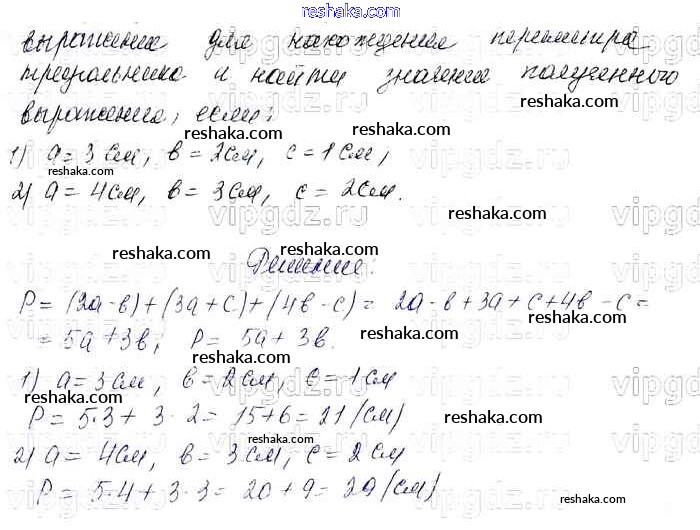 reshaka.com
выражение для нахождения периметра
треугольника и найти значение полученного
выражения, если:
reshaka.com
1) a = 3 см, в = 2 см, с = 1 см,
reshaka.com
2) a = 4 см, в = 3 см, с = 2 см.
reshaka.com
reshaka.com
reshaka.com
Решение:
P = (2a - в) + (3a + с) + (4в - с) = 2a - в + 3a + с + 4в - с =
= 5a + 3в; P = 5a + 3в.
reshaka.com
reshaka.com
1) a = 3 см, в = 2 см, с = 1 см
reshaka.com
P = 5·3 + 3·2 = 15 + 6 = 21 (см)
reshaka.com
2) a = 4 см, в = 3 см, с = 2 см
reshaka.com
P = 5·4 + 3·3 = 20 + 9 = 29 (см)
reshaka.com
vipgdz.ru